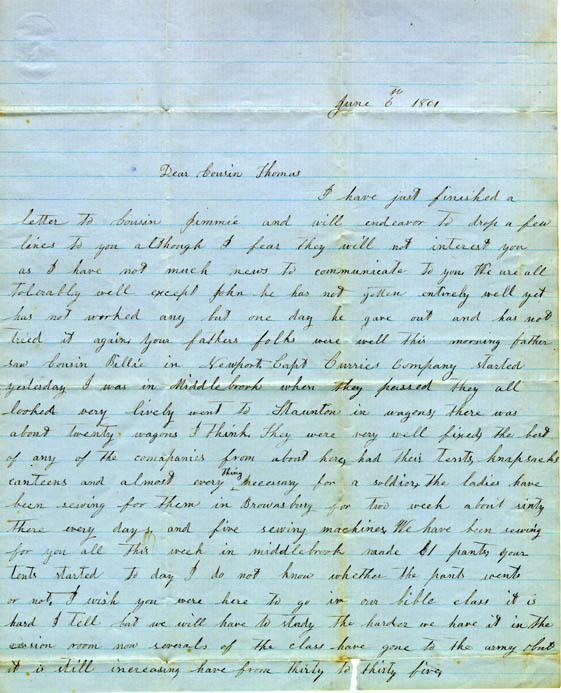 June 6th 1861
Dear Cousin Thomas
I have just finished a
letter to Cousin Jimmie and will endeavor to drop a few
lines to you although I fear they will not interest you
as I have not much news to communicate to you We are all
tolerably well except John he has not gotten entirely well yet
has not worked any but one day he gave out and has not
tried it again, Your fathers folks were well this morning father
saw Cousin Billie in Newport, Capt Curries Company started
yesterday I was in Middlebrook when they passed they all
looked very lively went to Staunton in wagons, there was
about twenty wagons I think, They were very well fixed, the best
of any of the comapanies from about here, had their tents, knapsacks
canteens and almost every thing necessary for a soldier, the ladies have
been sewing for them in Brownsburg for two week about sixty
there every day, and five sewing machines, We have been sewing
for you all this week in middlebrook made 61 pants, your
tents started to day I do not know whether the pants went
or not, I wish you were here to go in our bible class it is
hard I tell but we will have to study the harder we have it in the
session room now severals of the class have gone to the army but
it is still increasing have from thirty to thirty five,